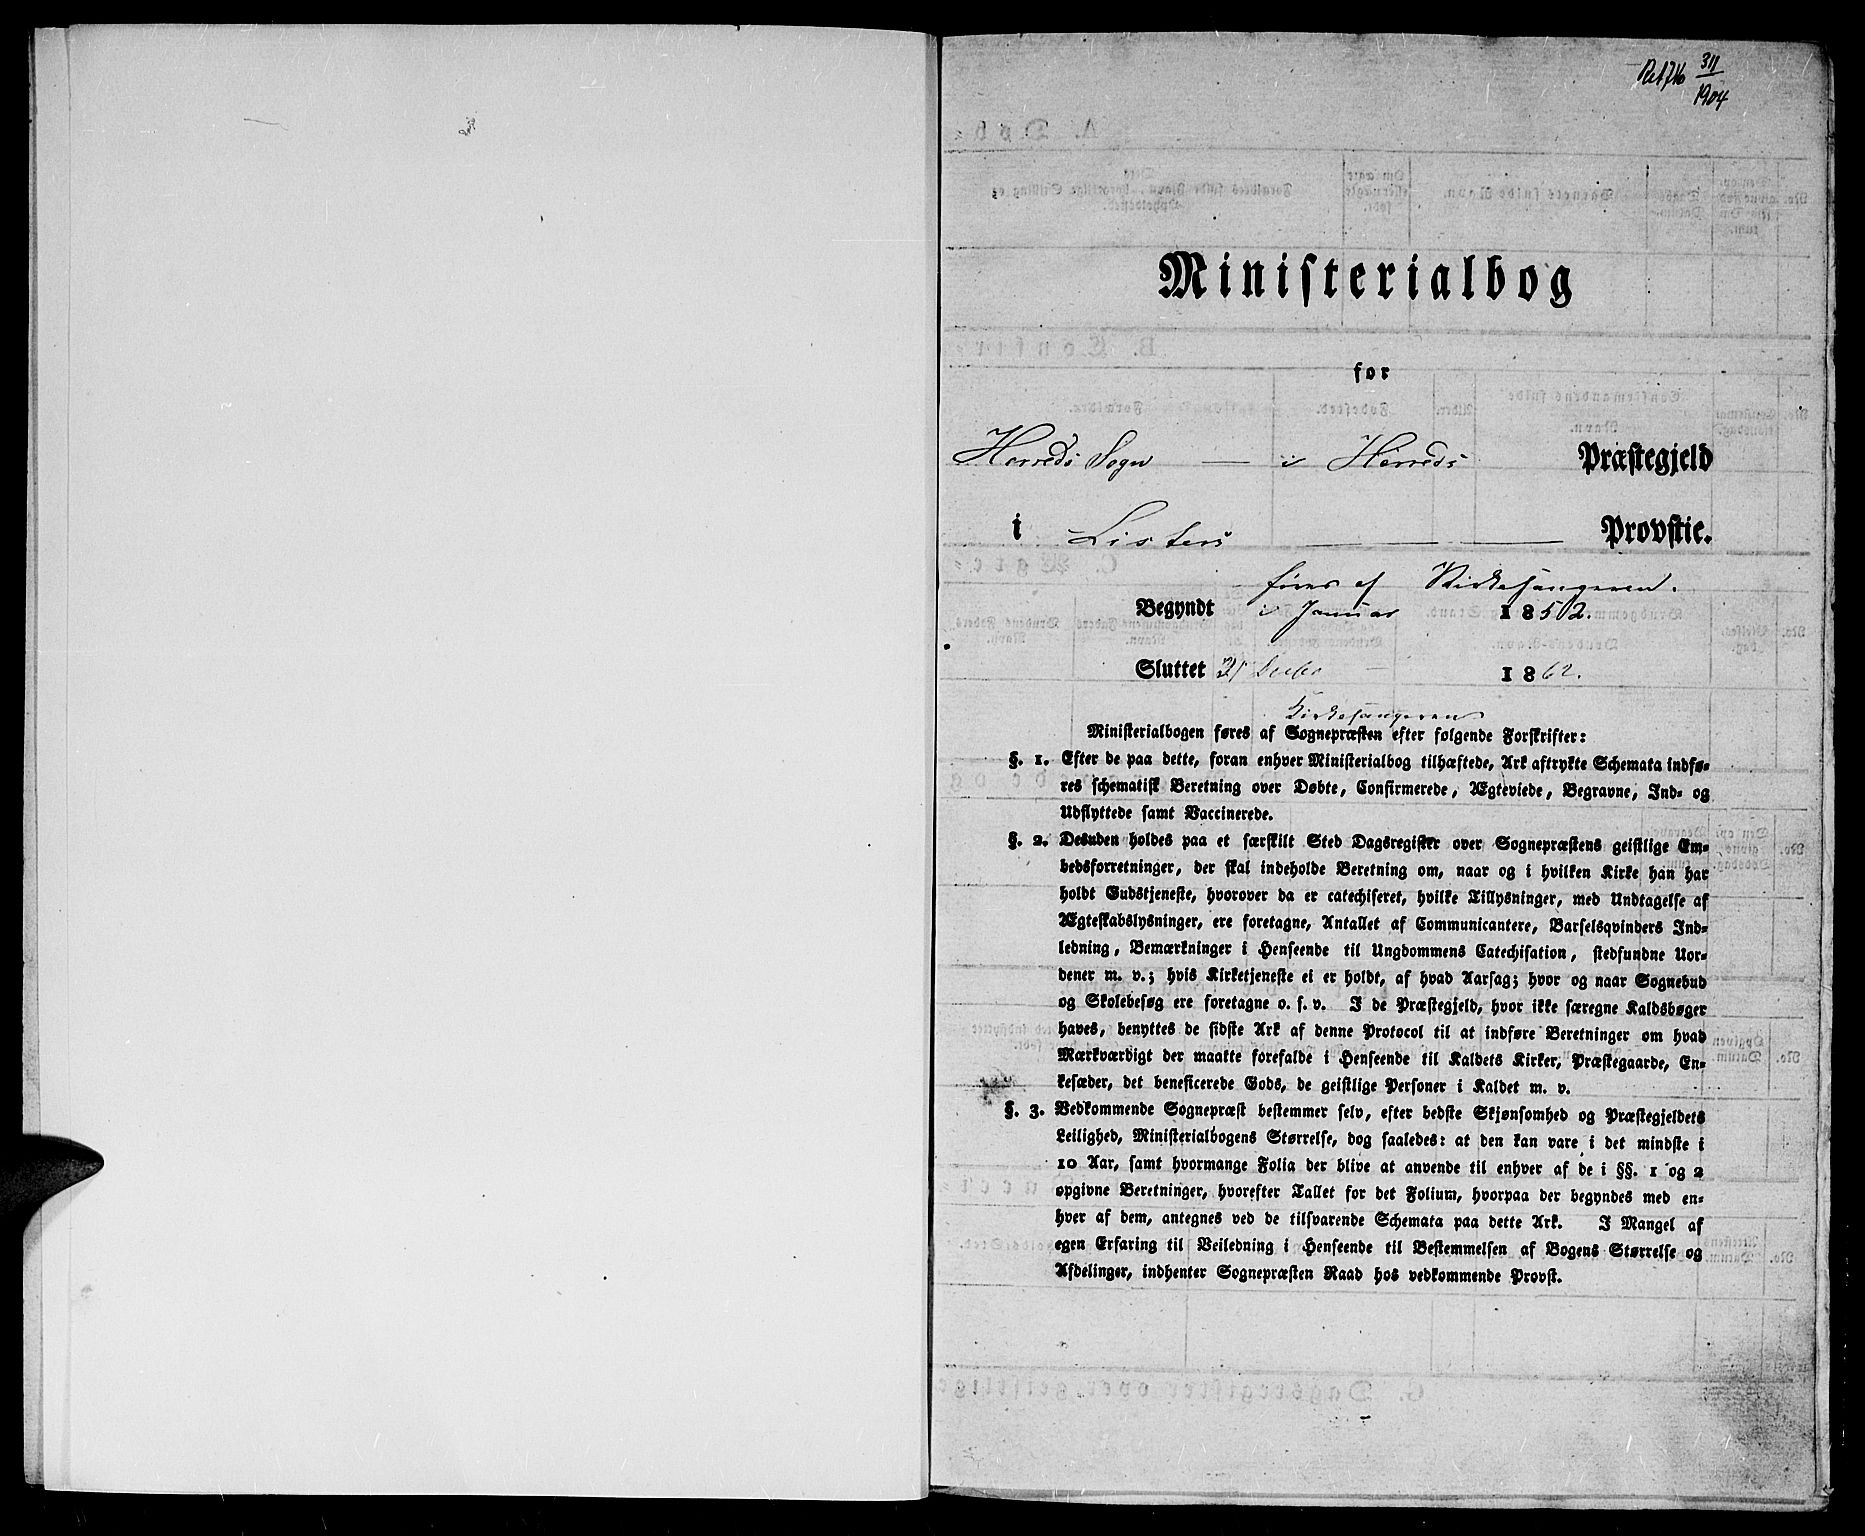 311
1904
Ministerialbog
for
Herreds Sogn — i Herreds Præstegjeld
i Listers Provstie.
føres af Kirkesangeren.
Begyndt i Januar 1852.
Sluttet 31 Decbr 1862.
Kirkesangeren
Ministerialbogen føres af Sognepræsten efter følgende Forskrifter:
§. 1. Efter de paa dette, foran enhver Ministerialbog tilhæftede, Ark aftrykte Schemata indfø=
res schematisk Beretning over Døbte, Confirmerede, Ægteviede, Begravne, Ind= og
Udflyttede samt Vaccinerede.
§. 2. Desuden holdes paa et særskilt Sted Dagsregister over Sognepræstens geistlige Em=
bedsforretninger, der skal indeholde Beretning om, naar og i hvilken Kirke han har
holdt Gudstjeneste, hvorover da er catechiseret, hvilke Tillysninger, med Undtagelse af
Ægteskabslysninger, ere foretagne, Antallet af Communicantere, Barselsqvinders Ind=
ledning, Bemærkninger i Henseende til Ungdommens Catechisation, stedfundne Uor=
dener m. v.; hvis Kirketjeneste ei er holdt, af hvad Aarsag; hvor og naar Sognebud
og Skolebesøg ere foretagne o. s. v. I de Præstegjeld, hvor ikke særegne Kaldsbøger
haves, benyttes de sidste Ark af denne Protocol til at indføre Beretninger om hvad
Mærkværdigt der maatte forefalde i Henseende til Kaldets Kirker, Præstegaarde, En=
kesæder, det beneficerede Gods, de geistlige Personer i Kaldet m. v.
§. 3. Vedkommende Sognepræst bestemmer selv, efter bedste Skjønsomhed og Præstegjeldets
Leilighed, Ministerialbogens Størrelse, dog saaledes: at den kan vare i det mindste i
10 Aar, samt hvormange Folia der blive at anvende til enhver af de i §§. 1 og 2
opgivne Beretninger, hvorefter Tallet for det Folium, hvorpaa der begyndes med en=
hver af dem, antegnes ved de tilsvarende Schemata paa dette Ark. I Mangel af
egen Erfaring til Veiledning i Henseende til Bestemmelsen af Bogens Størrelse og
Afdelinger, indhenter Sognepræsten Raad hos vedkommende Provst.